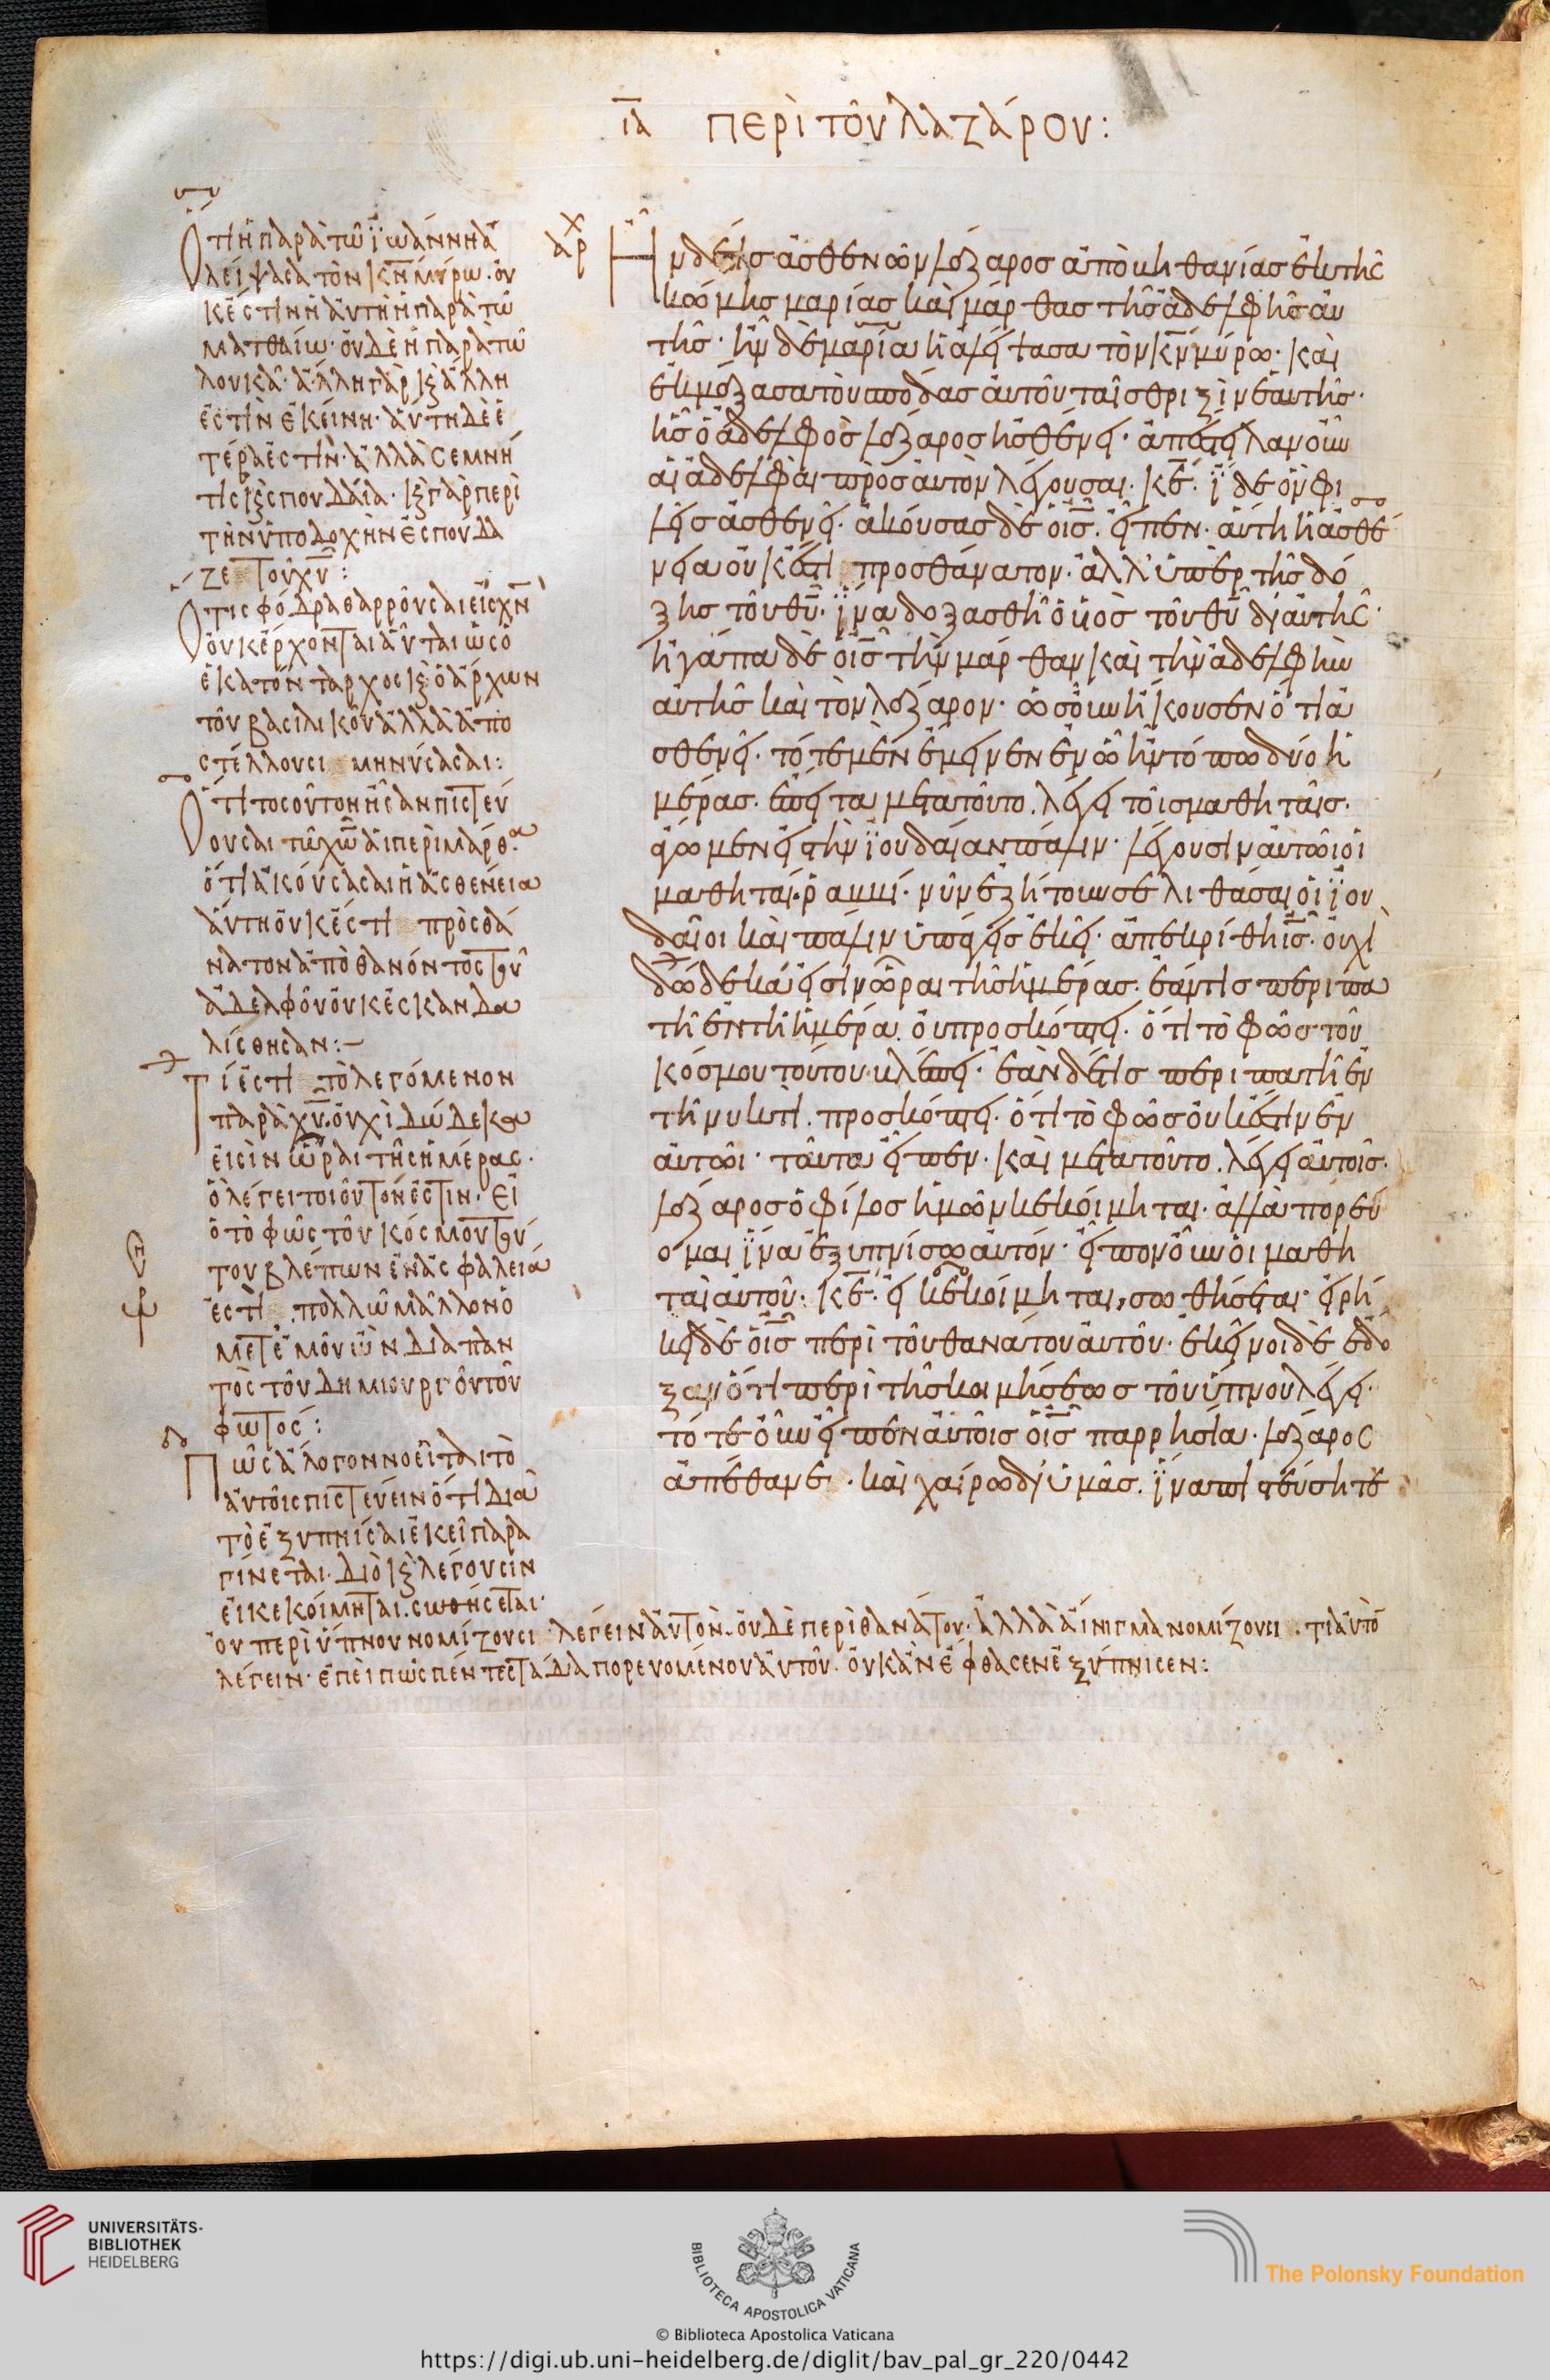 ια περὶ τοῦ λαζάρου:
Ὅτι ἡ παρὰ τῶ ϊωάννη ἀ
λείψασα τὸν κν μύρω· οὐ
κ ἔστιν ἡ αὐτὴ ἡ παρὰ τῶ
ματθαίω· οὐδὲ ἡ παρὰ τῶ
λουκᾶ· ἄλλη γὰρ κ ἄλλη
ἐστὶν ἐκείνη· αὕτη δὲ ἑ
τέρα ἐστὶν· ἀλλὰ σεμνή
τις κ σπουδαία· κ γὰρ περὶ
τὴν ὑποδοχὴν ἐσπουδα
ζε τοῦ χυ:
Ὅτι σφόδρα θαρροῦσαι εἰς χν
οὐκ ἔρχονται αὗται ὡς ὁ
ἑκατόνταρχος κ ὁ ἄρχων
τοῦ βασιλικοῦ ἀλλὰ ἀπο
στέλλουσι μηνύσασαι:
Ὅτι τοσοῦτον ἦσαν πιστεύ
ουσαι τῶ χω αἱ περὶ μάρθα
ὅτι ἀκούσασαι ἡ ἀσθένεια
αὕτη οὐκ ἔστι πρὸς θά
νατον ἀποθανόντος τοῦ
ἀδελφοῦ οὐκ ἐσκανδα
λίσθησαν:
Τί ἐστι τὸ λεγόμενον
παρὰ χυ· οὐχὶ δώδεκα
εἰσὶν ὧραι τῆς ἡμέρας·
ὃ λέγει τοιοῦτον ἐστιν· εἰ
ὁ τὸ φῶς τοῦ κόσμου τού
του βλέπων ἐν ἀσφαλεία
ἐστὶ πολλῶ μᾶλλον ὁ
μετ ἐμοῦ ὢν διαπαν
τὸς τοῦ δημιουργοῦ τοῦ
φωτός:
Πῶς ἄλογον νοεῖται τὸ
αὐτοῖς πιστεύειν ὅτι διὰ
τὸ ἐξυπνίσαι ἐκεῖ παρα
γίνεται· διὸ κ λέγουσιν
εἰ κεκοίμηται. σωθήσεται·
οὐ περὶ ὕπνου νομίζουσι λέγειν αὐτὸν· οὐδὲ περὶ θανάτου· ἀλλὰ αἴνιγμα νομίζουσι. τι αὐτὸ
λέγειν· ἐπεὶ πῶς πέντε στάδια πορευομένου αὐτοῦ· οὐκ ἂν ἔφθασεν ἐξύπνισεν:
αρχ Ἦν δέ τις ἀσθενῶν λάζαρος ἀπὸ βηθανίας ἐκ τῆς
κώμης μαρίας καὶ μάρθας τῆς ἀδελφῆς αὐ
τῆς· ἦν δὲ μαρία ἡ ἀλείψασα τὸν κν μύρω· καὶ
ἐκμάξασα τοὺς πόδας αὐτοῦ ταῖς θριξὶν ἑαυτῆς·
ἧς ὁ ἀδελφὸς λάζαρος ἠσθένει· ἀπέστειλαν οὖν
αἱ ἀδελφαὶ πρὸς αὐτὸν λέγουσαι· κε· ἴδε ὃν φι
λεῖς ἀσθενεῖ· ἀκούσας δὲ ὁ ις. εἶπεν· αὕτη ἡ ἀσθέ
νεια οὐκ ἔστι προς θάνατον· ἀλλ' ὑπὲρ τῆς δό
ξης τοῦ θυ· ἵνα δοξασθῆ ὁ υἱὸς τοῦ θυ δι' αὐτῆς·
ἠγάπα δὲ ὁ ις τὴν μάρθαν καὶ τὴν ἀδελφὴν
αὐτῆς καὶ τὸν λάζαρον· ὡς οὖν ἤκουσεν ὅτι ἀ
σθενεῖ· τότε μὲν ἔμεινεν ἐν ὧ ἦν τόπω δύο ἡ
μέρας· ἔπειτα μετα τοῦτο. λέγει τοῖς μαθηταῖς·
ἄγωμεν εἰς τὴν ϊουδαίαν πάλιν· λέγουσιν αὐτῶι οἱ
μαθηταί· ῥαββί· νῦν ἐζήτουν σε λιθάσαι οἱ ϊου
δαῖοι καὶ πάλιν ὑπάγεις ἐκεῖ· ἀπεκρίθη ις· οὐχὶ
δώδεκά εἰσιν ὧραι τῆς ἡμέρας· ἐάν τις περιπα
τῆ ἐν τῆ ἡμέρα ου προσκόπτει· ὅτι τὸ φῶς τοῦ
κόσμου τούτου βλέπει· ἐὰν δέ τις περιπατῆ ἐν
τῆ νυκτὶ. προσκόπτει· ὅτι τὸ φῶς οὐκ ἔστιν ἐν
αὐτῶι· ταῦτα εἶπεν· καὶ μετα τοῦτο. λέγει αὐτοῖς·
λάζαρος ὁ φίλος ἡμῶν κεκοίμηται· ἀλλὰ πορεύ
ομαι ἵνα ἐξυπνίσω αὐτόν· εἶπον οὖν οἱ μαθη
ταὶ αὐτοῦ· κε· εἰ κεκοίμηται, σωθήσεται· εἰρή
κει δὲ ὁ ις περὶ τοῦ θανάτου αὐτοῦ· ἐκεῖνοι δὲ ἔδο
ξαν ὅτι περὶ τῆς κοιμήσεως τοῦ ὕπνου λέγει·
τότε οὖν εἶπεν αὐτοῖς ὁ ις παρρησία· λάζαρος
ἀπέθανεν· καὶ χαίρω δι' ὑμᾶς· ἵνα πιστεύσητε
UNIVERSITÄTS-
BIBLIOTHEK
HEIDELBERG
BIBLIOTECA APOSTOLICA VATICANA
The Polonsky Foundation
© Biblioteca Apostolica Vaticana
https://digi.ub.uni-heidelberg.de/diglit/bav_pal_gr_220/0442